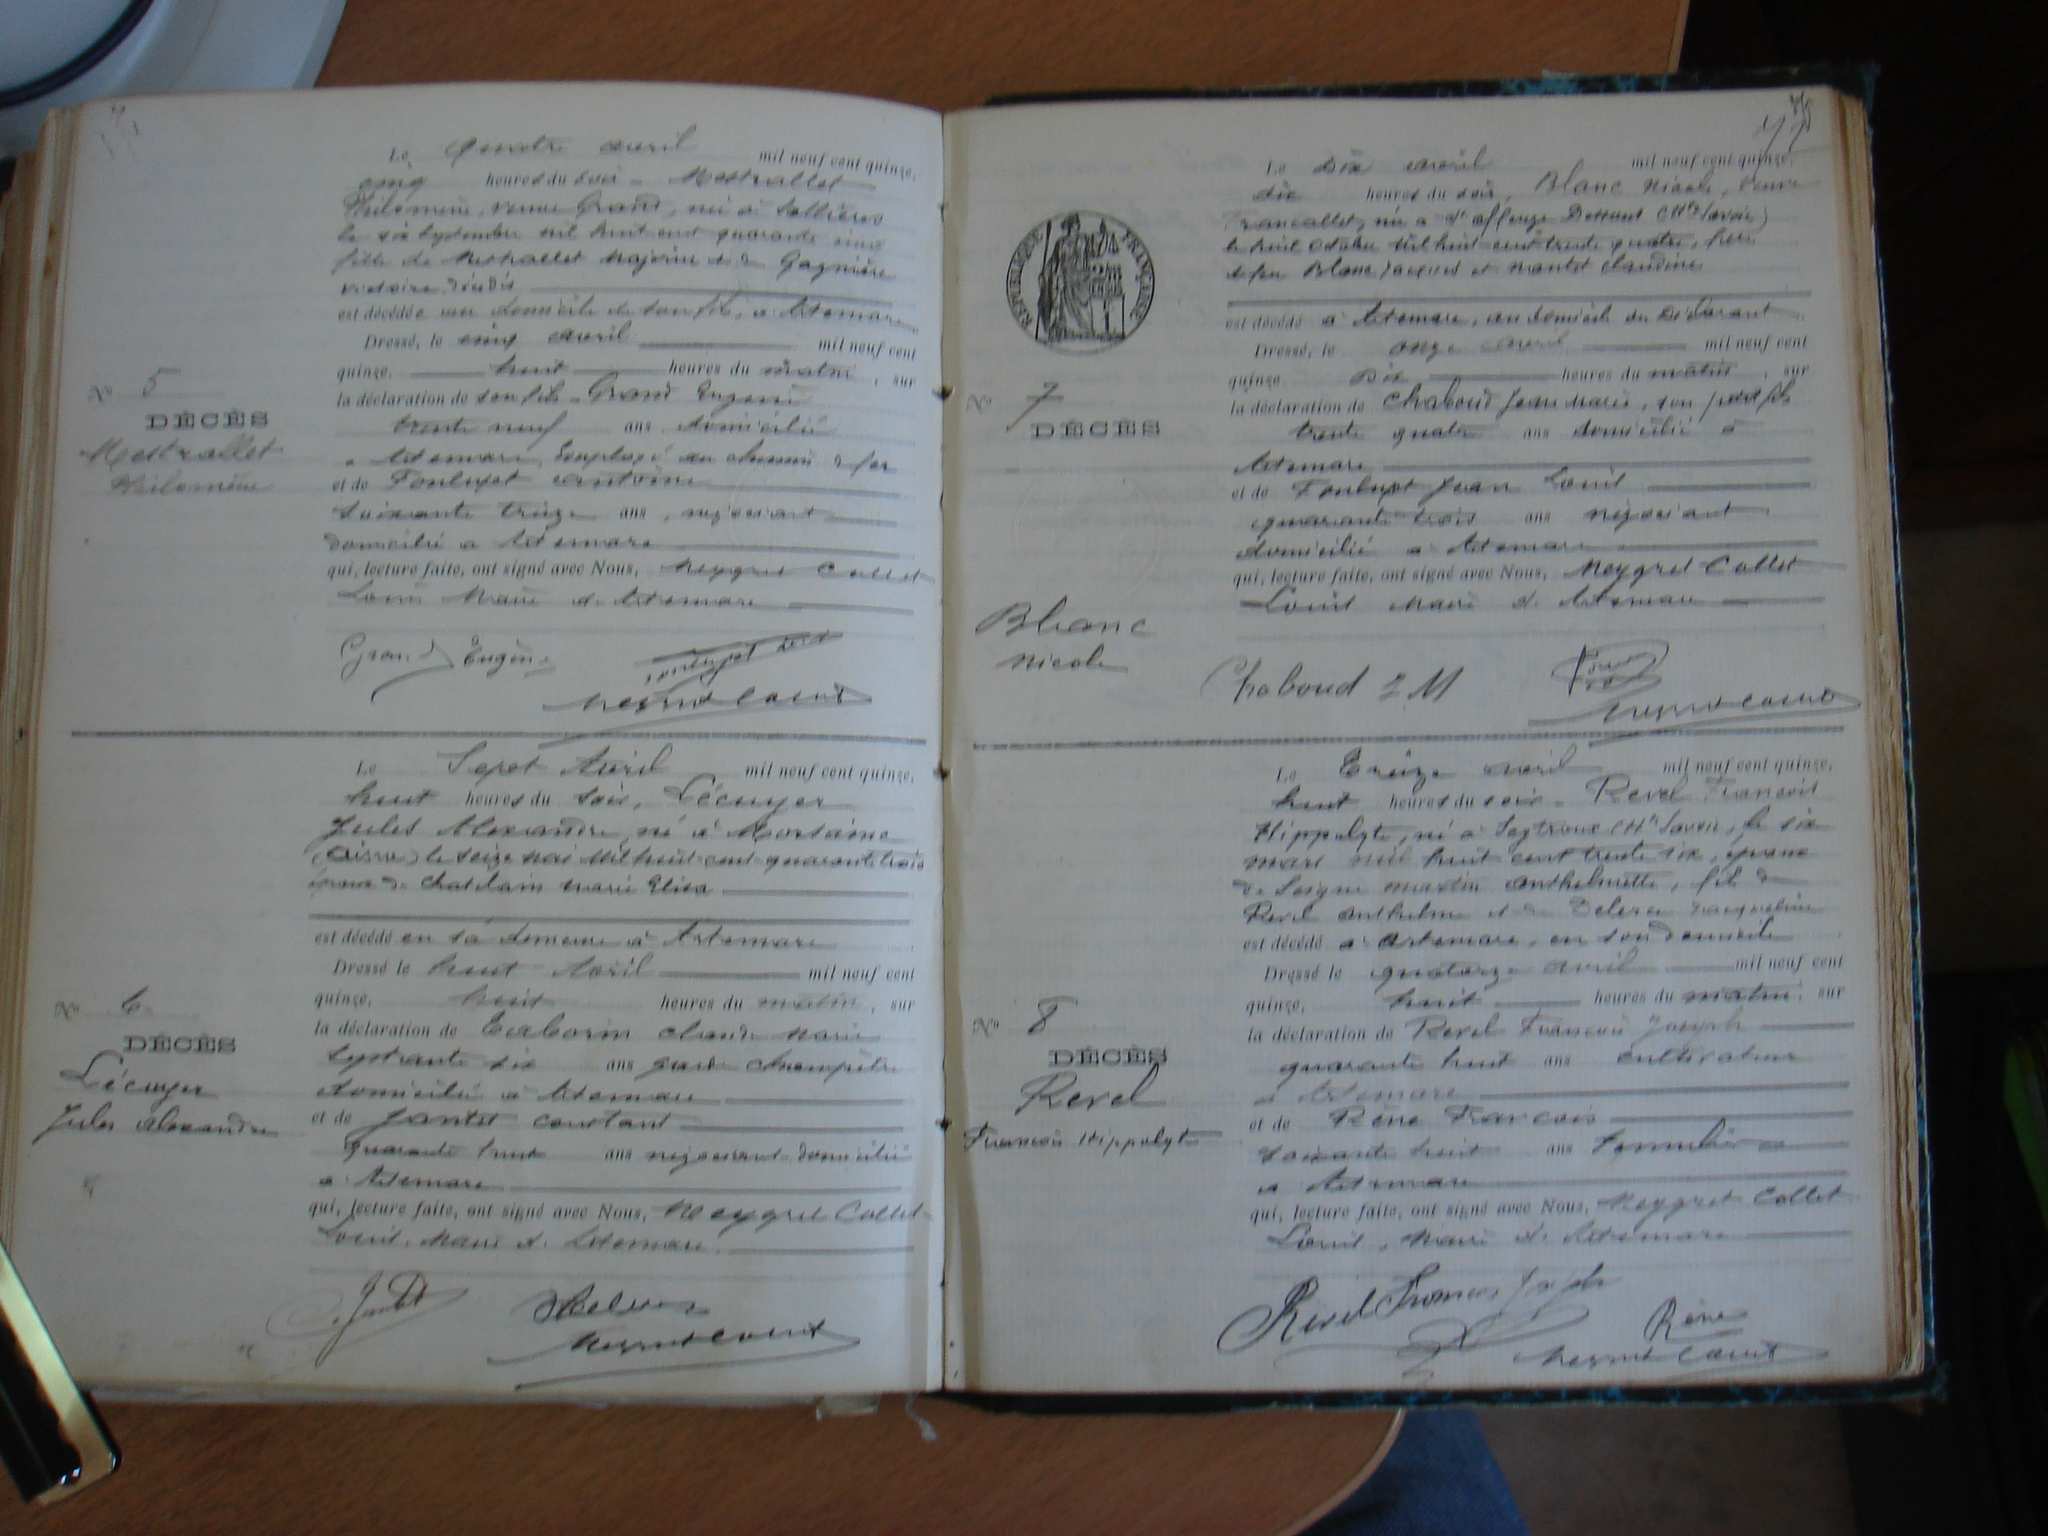 Le Quatre avril mil neuf cent quinze,
cinq heures du soir, Mestrallet
Philomène, veuve Grand, née à Sollières
le six septembre mil huit cent quarante
fille de Mestrallet Majorin et de Gagnière
victoire, décédés
est décédée au domicile de son fils, à Artemare
Dressé, le cinq avril mil neuf cent
quinze, huit heures du matin, sur
la déclaration de son fils Grand Eugène
trente neuf ans domicilié
à Artemare, Employé au chemin de fer
et de Fonlupt antoine
soixante treize ans, négociant
domicilié à Artemare
qui, lecture faite, ont signé avec Nous, Meygret Collet
Louis Maire d'Artemare
No 5
DÉCÈS
Mestrallet
Philomène
Grand Eugène
Meygret Collet
Le Sept Avril mil neuf cent quinze,
huit heures du soir, Lécuyer
Jules Alexandre, né à
(Aisne) le seize mai mil huit cent quarante trois
époux de Chatelain Marie Elisa
est décédé en sa demeure à Artemare
Dressé le huit Avril mil neuf cent
quinze, huit heures du matin, sur
la déclaration de claude Marie
ans garde champêtre
domicilié à Artemare
et de Jantet constant
quarante huit ans négociant domicilié
à Artemare
qui, lecture faite, ont signé avec Nous, Meygret Collet
Louis, Maire d'Artemare
No 6
DÉCÈS
Lécuyer
Jules Alexandre
Jantet
Meygret Collet
RÉPUBLIQUE FRANÇAISE
Le Dix avril mil neuf cent quinze,
dix heures du soir, Blanc Nicole, veuve
Francallet, née à
le huit Octobre mil huit cent trente quatre, fille
de feu Blanc Jacques et Montet claudine
est décédé à Artemare, au domicile du Déclarant
Dressé, le onze avril mil neuf cent
quinze, Dix heures du matin, sur
la déclaration de Chaboud Jean Marie, son petit fils
trente quatre ans domicilié à
Artemare
et de Fonlupt Jean Louis
quarante trois ans négociant
domicilié à Artemare
qui, lecture faite, ont signé avec Nous, Meygret Collet
Louis Maire d'Artemare
No 7
DÉCÈS
Blanc
Nicole
Chaboud J M
Meygret Collet
Le Treize avril mil neuf cent quinze,
huit heures du soir, Revel François
Hippolyte, né à Seytroux (Hte Savoie), le six
mars mil huit cent trente six, époux
de anthelmette, fils de
Revel anthelme et de Jacqueline
est décédé à Artemare, en son domicile
Dressé le quatorze avril mil neuf cent
quinze, huit heures du matin, sur
la déclaration de Revel François Joseph
quarante huit ans cultivateur
à Artemare
et de Rène François
soixante huit ans
à Artemare
qui, lecture faite, ont signé avec Nous, Meygret Collet
Louis, Maire d'Artemare
No 8
DÉCÈS
Revel
François Hippolyte
Revel François Joseph
Rène
Meygret Collet